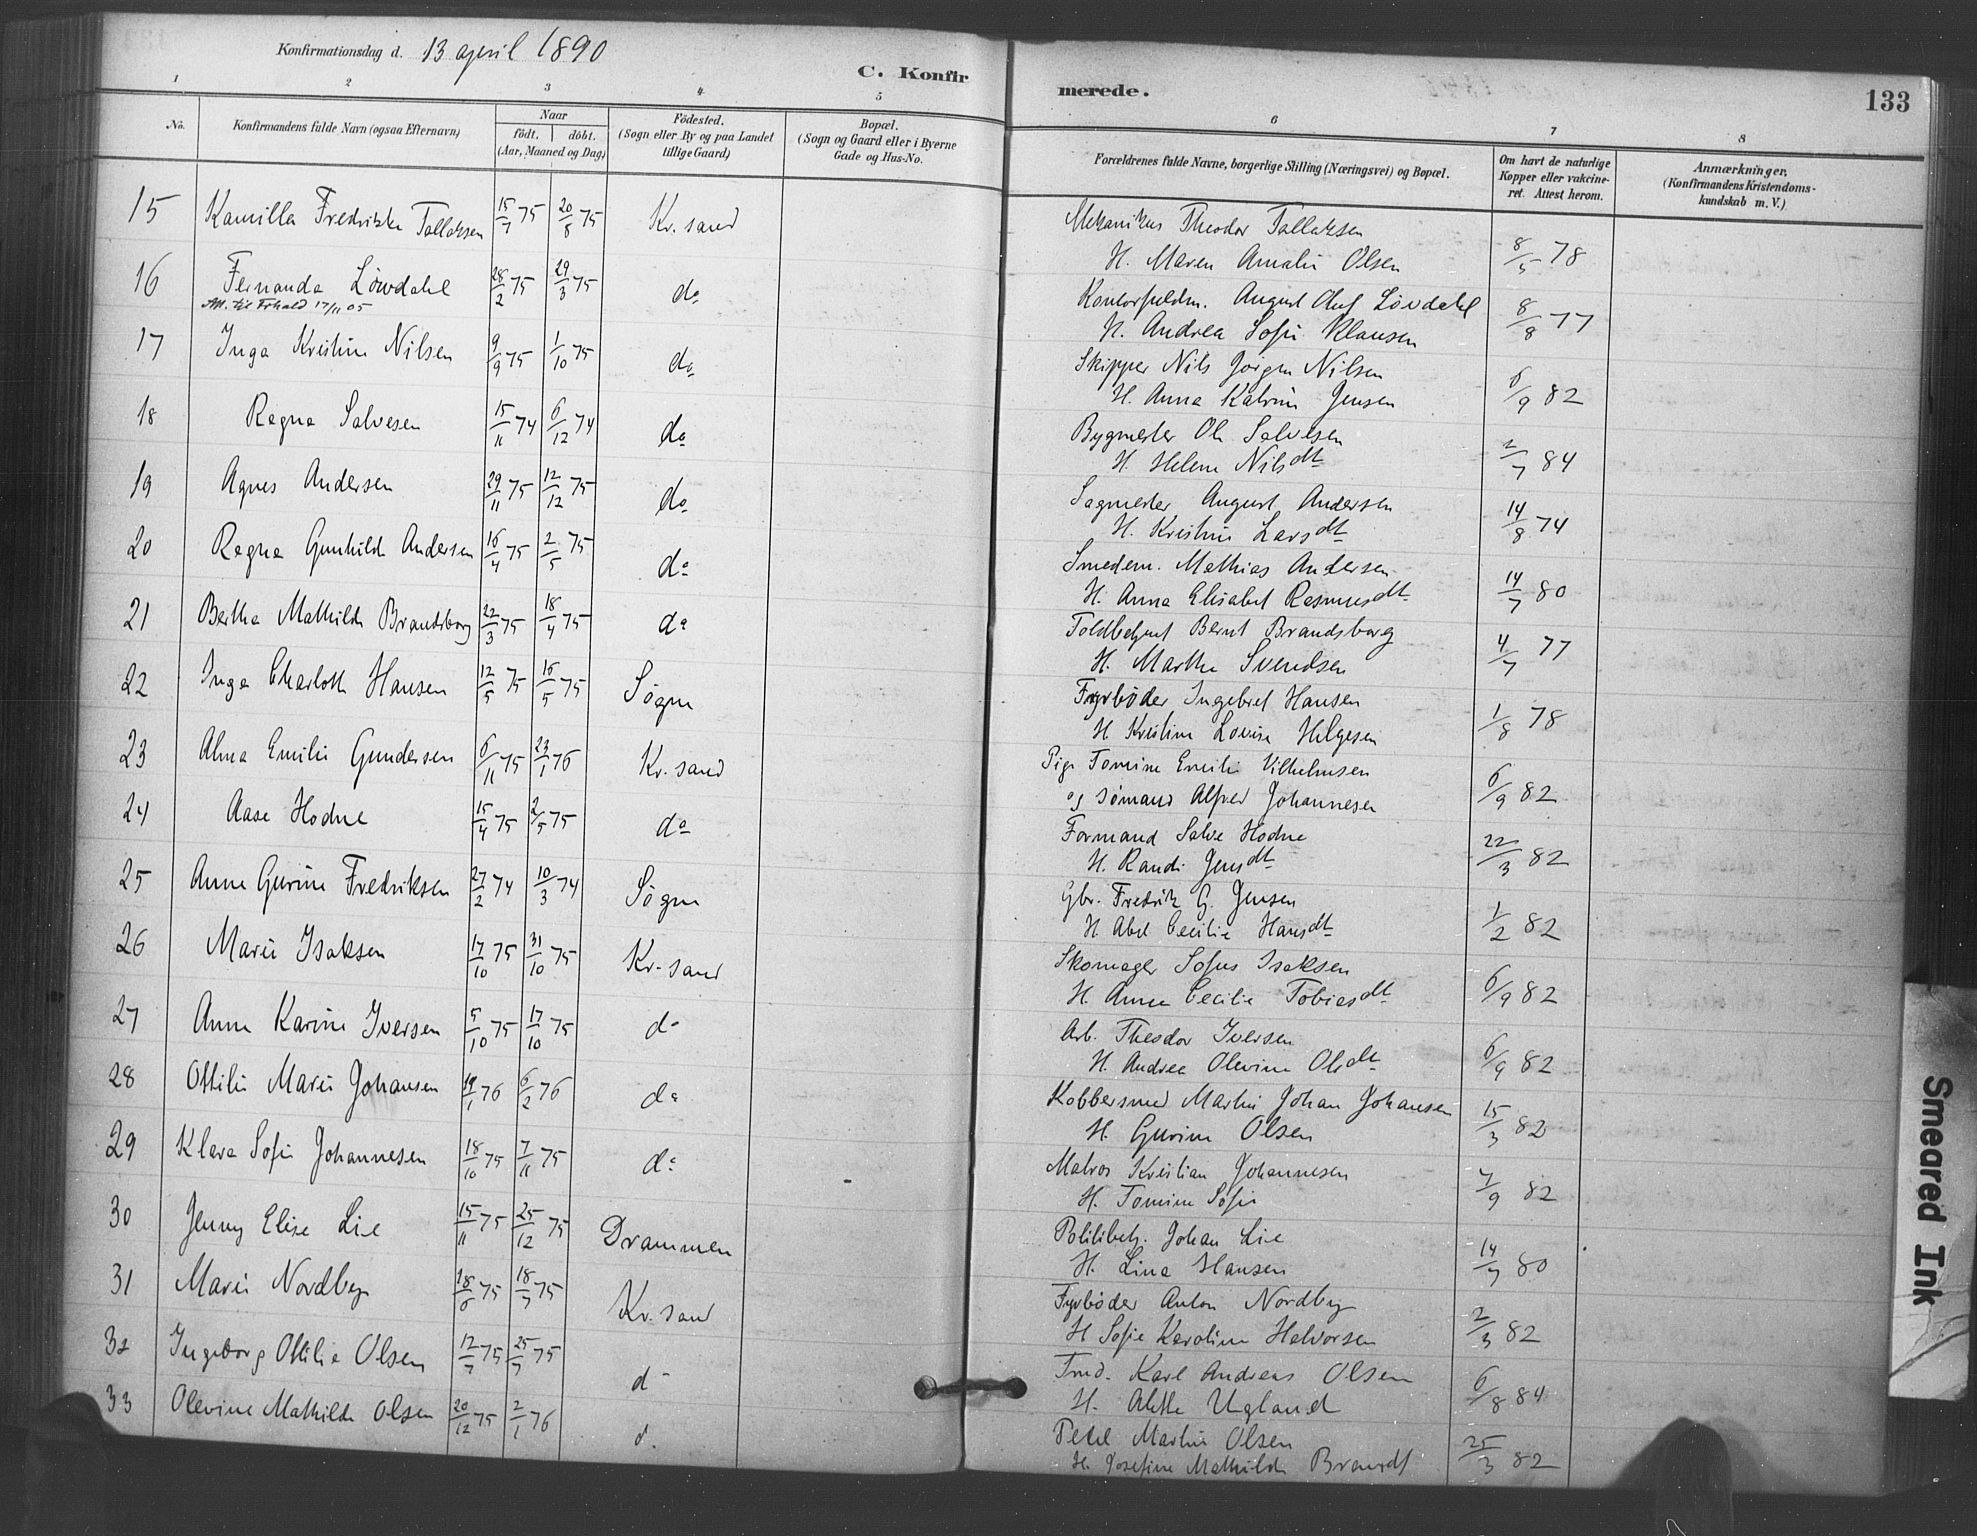 Konfirmationsdag d. 13 april 1890
C. Konfirmerede.
133
1 2 3 4 5 6 7 8
No.
Konfirmandens fulde Navn (ogsaa Efternavn)
Naar
født. døbt.
(Aar, Maaned og Dag)
Fødested.
(Sogn eller By og paa Landet
tillige Gaard)
Bopæl.
(Sogn og Gaard eller i Byerne
Gade og Hus-No.
Forældrenes fulde Navne, borgerlige Stilling (Næringsvei) og Bopæl.
Om havt de naturlige
Kopper eller vakcine-
ret. Attest herom.
Anmærkninger.
(Konfirmandens Kristendoms-
kundskab m. V.)
15 Kamilla Fredrikke Tallaksen 15/7 75 20/8 75 Kr.sand Mekanikus Theodor Tallaksen 8/5 78
H. Maren Amalie Olsen
16 Fernanda Løwdahl 28/2 75 29/3 75 do Kontorfuldm. August Oluf Løvdahl 8/8 77
Att. til Forhald 17/11 05
H. Andrea Sofie Klausen
17 Inga Kristine Nilsen 9/9 75 1/10 75 do Skipper Nils Jørgen Nilsen 6/9 82
H. Anna Katrine Jensen
18 Ragna Salvesen 15/11 74 6/12 74 do Bygmester Ole Salvesen 2/7 84
H. Helene Nilsdt
19 Agnes Andersen 29/11 75 12/12 75 do Sagmester August Andersen 14/8 74
H. Kristine Larsdt
20 Ragna Gunhilde Andersen 16/4 75 2/5 75 do Smedem. Mathias Andersen 14/7 80
H. Anna Elisabet Rasmusdt
21 Bertha Mathilde Brandsborg 22/3 75 18/4 75 do Toldbetjent Bernt Brandsborg 4/7 77
H. Marthe Svendsen
22 Inga Charlotte Hansen 12/5 75 16/5 75 Søgne Fyrbøder Ingebret Hansen 1/8 78
H Kristine Lovise Helgesen
23 Alma Emilie Gundersen 6/11 75 23/1 76 Kr.sand Pige Tomine Emilie Vilhelmsen 6/9 82
og sømand Alfred Johannesen
24 Aase Hodne 15/4 75 2/5 75 do Formand Salve Hodne 22/3 82
H. Randi Jensdt
25 Anne Gurine Fredriksen 27/2 74 10/3 74 Søgne Gbr. Fredrik G. Jensen 1/2 82
H Abel Cecilie Hansdt
26 Marie Isaksen 17/10 75 31/10 75 Kr.sand Skomager Sofus Isaksen 6/9 82
H. Anna Cecilie Tobiasdt
27 Anne Karine Iversen 5/10 75 17/10 75 do Arb. Theodor Iversen 6/9 82
H. Andrea Olevine Olsdt
28 Ottilie Marie Johansen 19/1 76 6/2 76 do Kobbersmed Martin Johan Johansen 15/3 82
H. Gurine Olsen
29 Klara Sofie Johannesen 18/10 75 7/11 75 do Matros Kristian Johannesen 7/9 82
H. Tomine Sofie
30 Jenny Elise Lie 15/11 75 25/12 75 Drammen Politibetj. Johan Lie 14/7 80
H. Lina Hansen
31 Marie Nordby 18/6 75 18/7 75 Kr.sand Fyrbøder Anton Nordby 2/3 82
H Sofie Karoline Halvorsen
32 Ingeborg Ottilie Olsen 12/7 75 25/7 75 d Tmd. Karl Andreas Olsen 6/8 84
H. Alette Ugland
33 Olevine Mathilde Olsen 20/12 75 2/1 76 d. Peder Martin Olsen 25/3 82
H. Josefine Mathilde Brandt
Smeared Ink